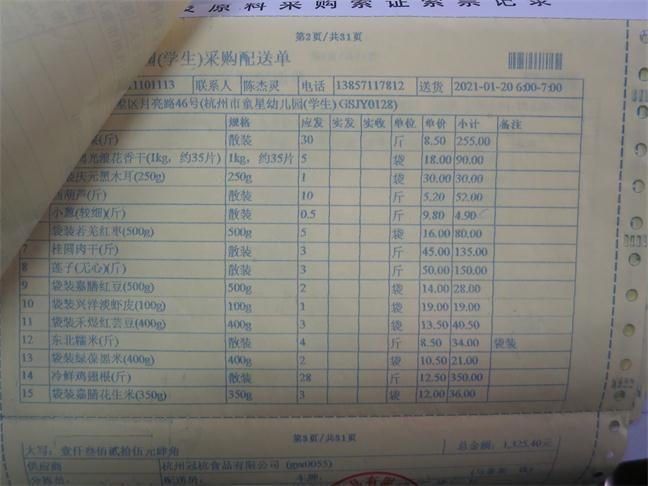 原料采购索证索票记录
第2页/共31页
园(学生)采购配送单
1101113 联系人 陈杰灵 电话 13857117812 送货 2021-01-20 6:00-7:00
区月亮路46号(杭州市童星幼儿园(学生) GSJY0128)
规格 应发 实发 实收 单位 单价 小计 备注
(斤) 散装 30 斤 8.50 255.00
光浪花香干(1kg，约35片) 1kg，约35片 5 袋 18.00 90.00
庆元黑木耳(250g) 250g 1 袋 30.00 30.00
葫芦(斤) 散装 10 斤 5.20 52.00
小葱(较细)(斤) 散装 0.5 斤 9.80 4.90
袋装若羌红枣(500g) 500g 5 袋 16.00 80.00
7 桂圆肉干(斤) 散装 3 斤 45.00 135.00
8 莲子(无心)(斤) 散装 3 斤 50.00 150.00
9 袋装嘉膳红豆(500g) 500g 2 袋 14.00 28.00
10 袋装兴洋淡虾皮(100g) 100g 1 袋 19.00 19.00
11 袋装禾煜红芸豆(400g) 400g 3 袋 13.50 40.50
12 东北糯米(斤) 散装 4 斤 8.50 34.00 袋装
13 袋装绿葆黑米(400g) 400g 2 袋 10.50 21.00
14 冷鲜鸡翅根(斤) 散装 28 斤 12.50 350.00
15 袋装嘉膳花生米(350g) 350g 3 袋 12.00 36.00
第3页/共31页
大写：壹仟叁佰贰拾伍元肆角 总金额：1,325.40元
供应商 杭州冠杭食品有限公司 (gys0055)
分拣员： 配送员： 车牌：